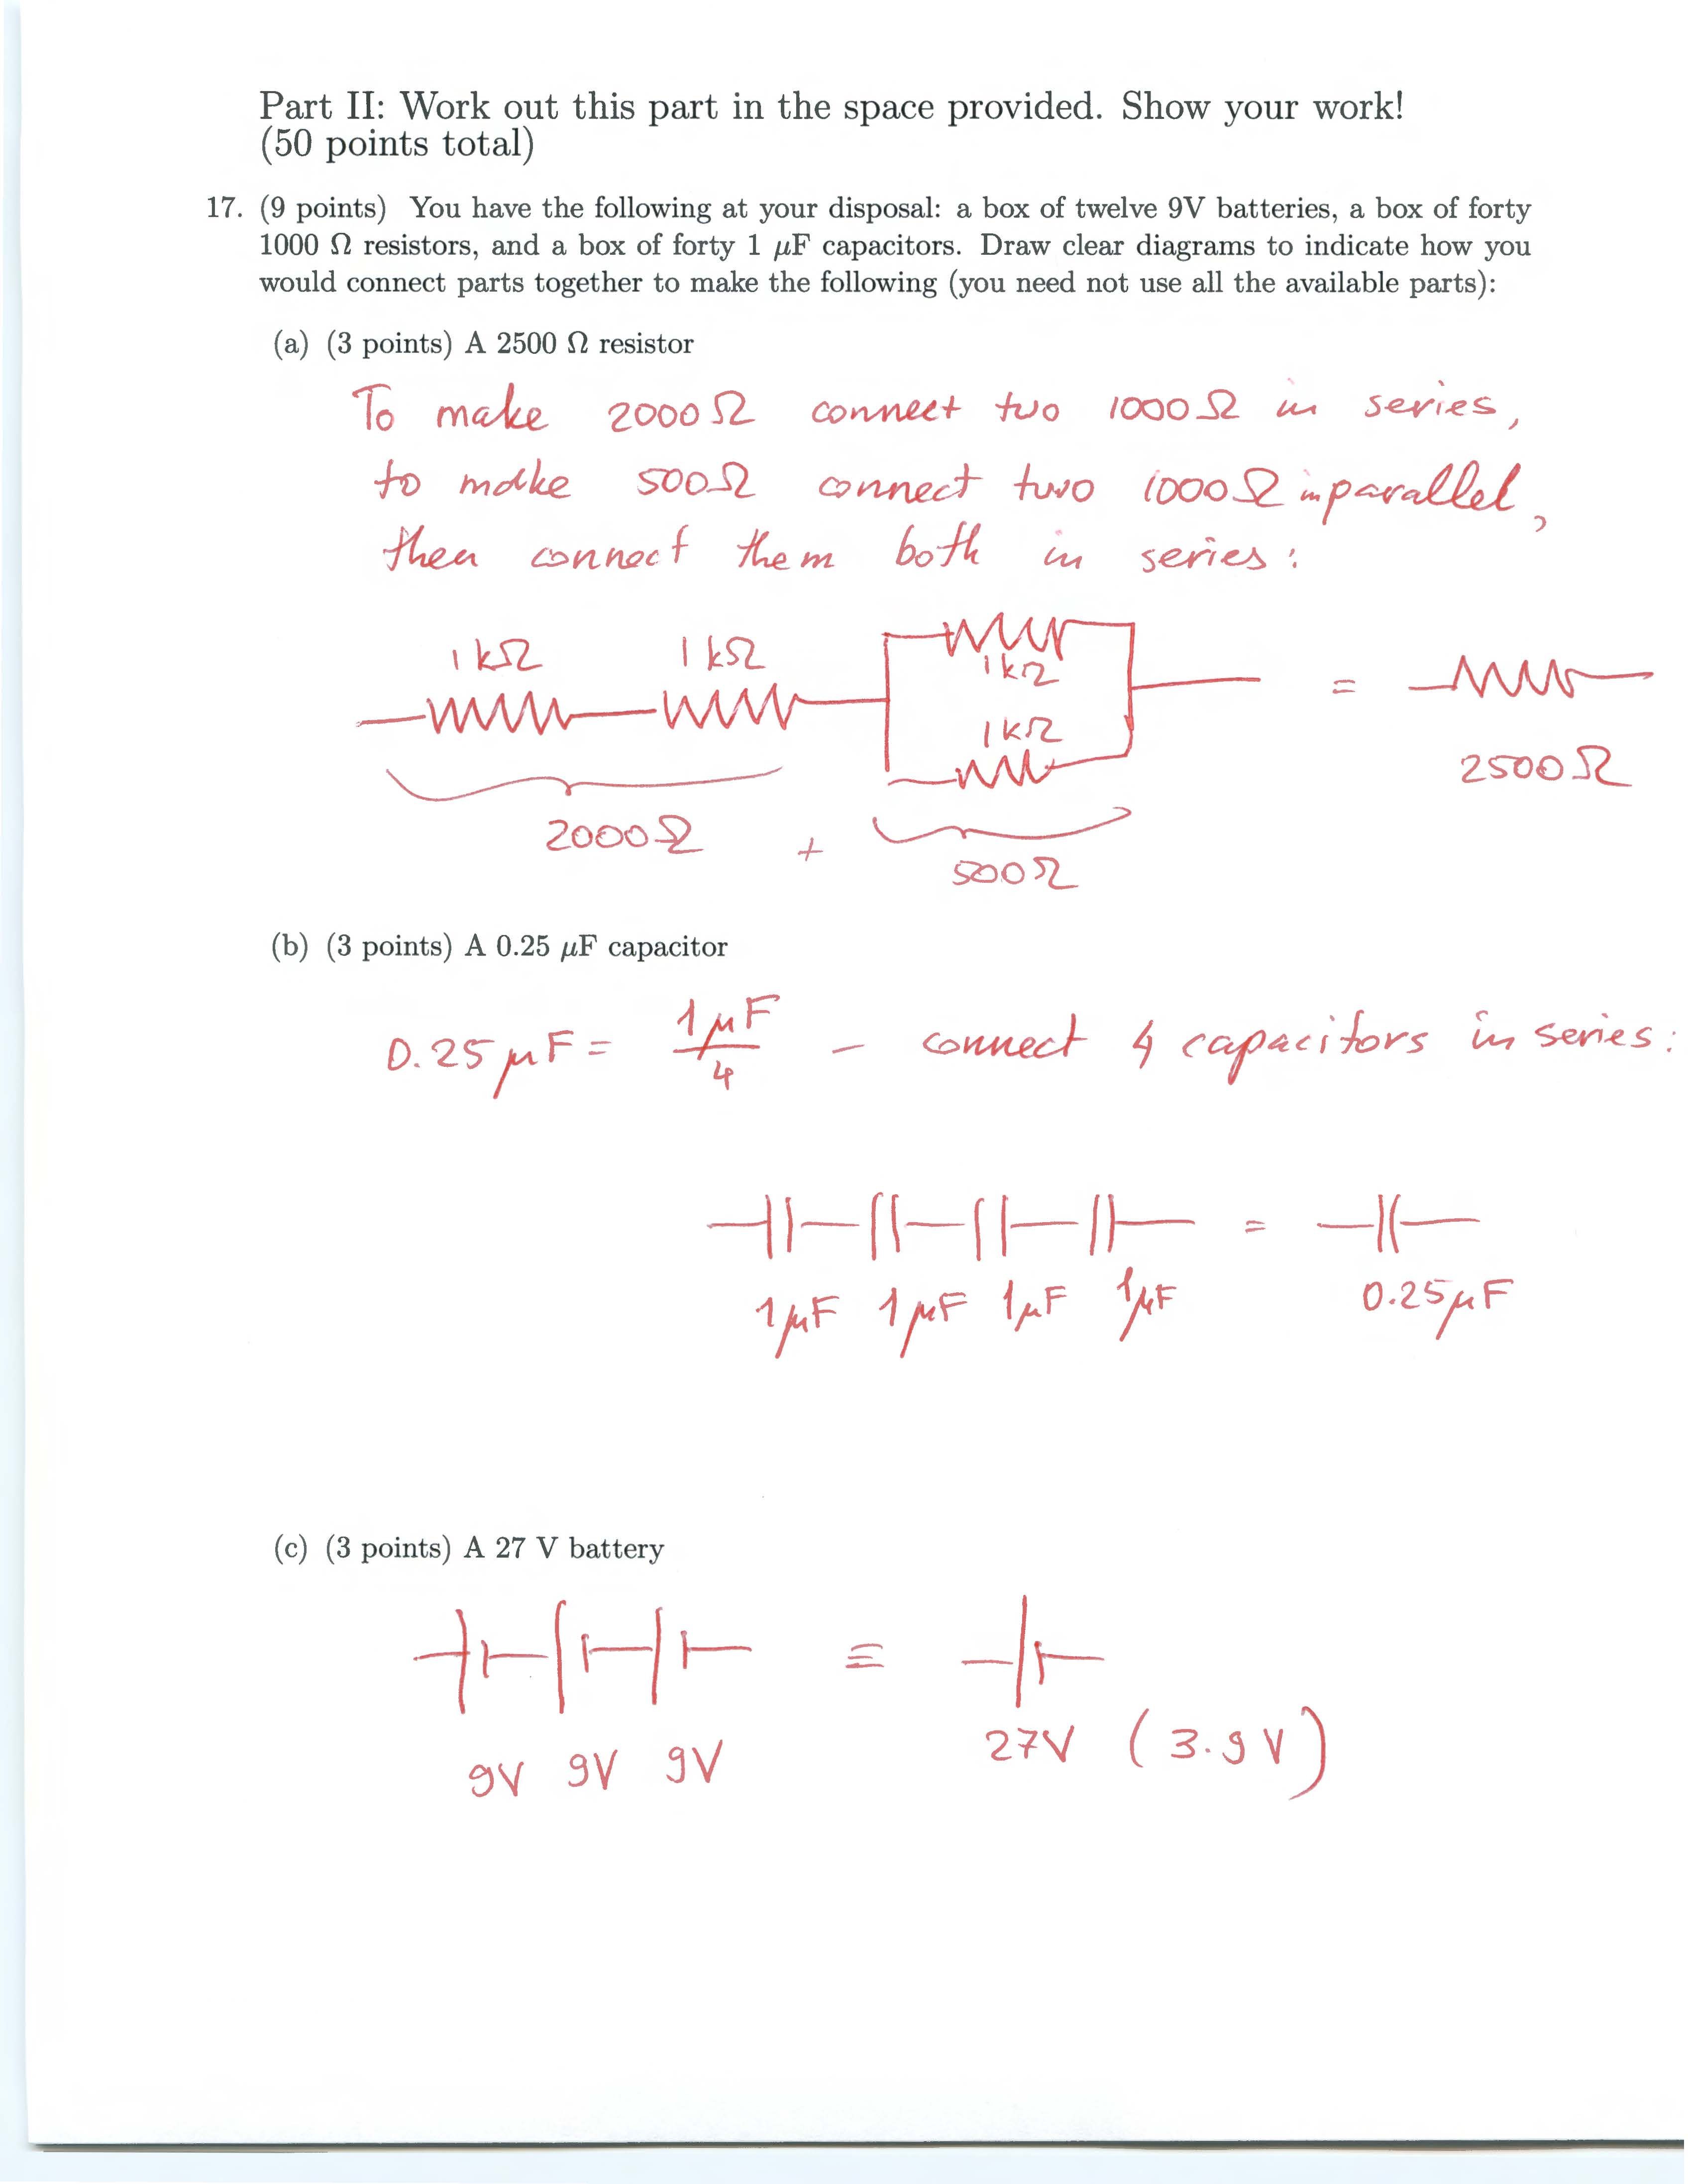 Part II: Work out this part in the space provided. Show your work!
(50 points total)
17. (9 points) You have the following at your disposal: a box of twelve 9V batteries, a box of forty
1000 Ω resistors, and a box of forty 1 μF capacitors. Draw clear diagrams to indicate how you
would connect parts together to make the following (you need not use all the available parts):
(a) (3 points) A 2500 Ω resistor
To make 2000Ω connect two 1000Ω in series,
to make 500Ω connect two 1000Ω in parallel,
then connect them both in series:
1kΩ 1kΩ 1kΩ
1kΩ
= 2500Ω
2000Ω + 500Ω
(b) (3 points) A 0.25 μF capacitor
0.25μF = 1μF/4 – connect 4 capacitors in series:
=
1μF 1μF 1μF 1μF 0.25μF
(c) (3 points) A 27 V battery
≡
9V 9V 9V 27V (3·9V)